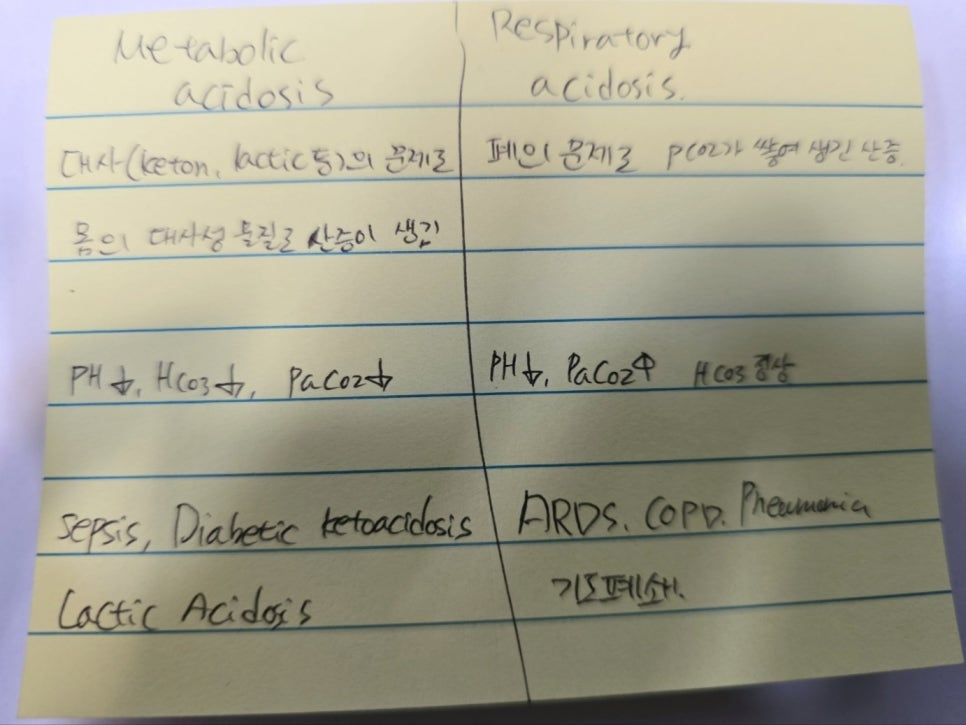 Metabolic
acidosis
대사(keton, lactic 등)의 문제로
몸의 대사성 물질로 산증이 생김
PH↓, HCO3↓, PaCO2↓
sepsis, Diabetic ketoacidosis
Lactic Acidosis
Respiratory
acidosis.
폐의 문제로 pCO2가 쌓여 생긴 산증.
PH↓, PaCO2↑ HCO3 정상
ARDS. COPD. Pneumonia
기도폐쇄.